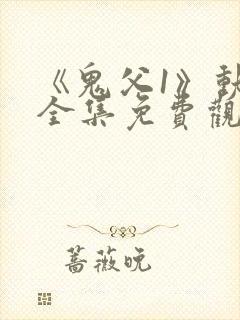 《鬼父1》動
全集免費觀
薔薇晚